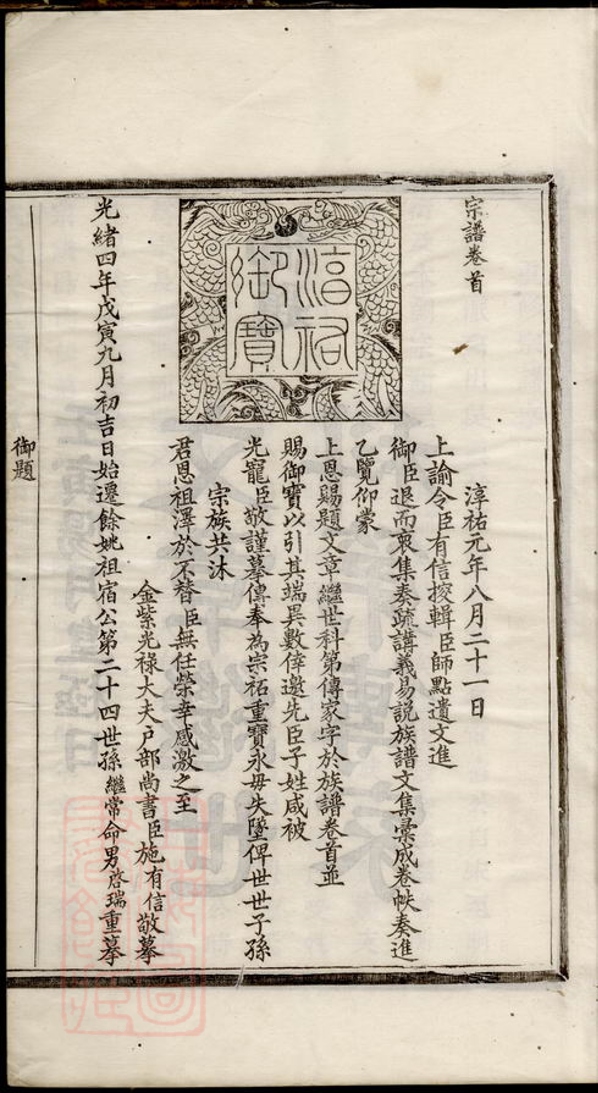 宗譜卷首
淳祐御寶
淳祐元年八月二十一日
上諭令臣有信搜輯臣師點遺文進
御臣退而裒集奏疏講義易說族譜文集彙成卷帙奏進
乙覽仰蒙
上恩賜題文章繼世科第傳家字於族譜卷首並
賜御寶以引其端異數倖邀先臣子姓咸被
光寵臣敬謹摹傳奉為宗祏重寶永毋失墜俾世世子孫
宗族共沐
君恩祖澤於不替臣無任榮幸感激之至
金紫光祿大夫戶部尚書臣施有信敬摹
光緒四年戊寅九月初吉日始遷餘姚祖宿公第二十四世孫繼常命男啓瑞重摹
御題